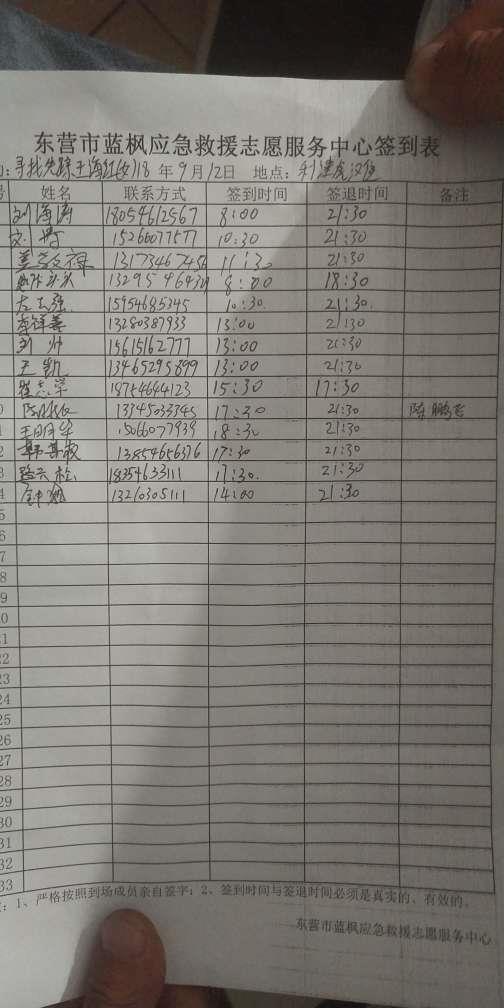 东营市蓝枫应急救援志愿服务中心签到表
寻找失踪王海红(女)18年9月12日 地点:利津
姓名 联系方式 签到时间 签退时间 备注
刘海涛 18054612567 8:00 21:30
15266077577 10:30 21:30
11:30 21:30
8:00 18:30
左志强 15954685345 10:30 21:30
李祥喜 13280387933 13:00 21:30
刘帅 15615162777 13:00 21:30
王凯 13465295899 13:00 21:30
18754644123 15:30 17:30
13345033345 17:30 21:30 陈鹏飞
王明华 15066077939 18:30 21:30
13854656376 17:30 21:30
18354633111 17:30 21:30
13210305111 14:00 21:30
5
6
7
8
9
0
1
22
23
24
25
26
27
28
29
30
31
32
33
:1、严格按照到场成员亲自签字;2、签到时间与签退时间必须是真实的、有效的。
东营市蓝枫应急救援志愿服务中心